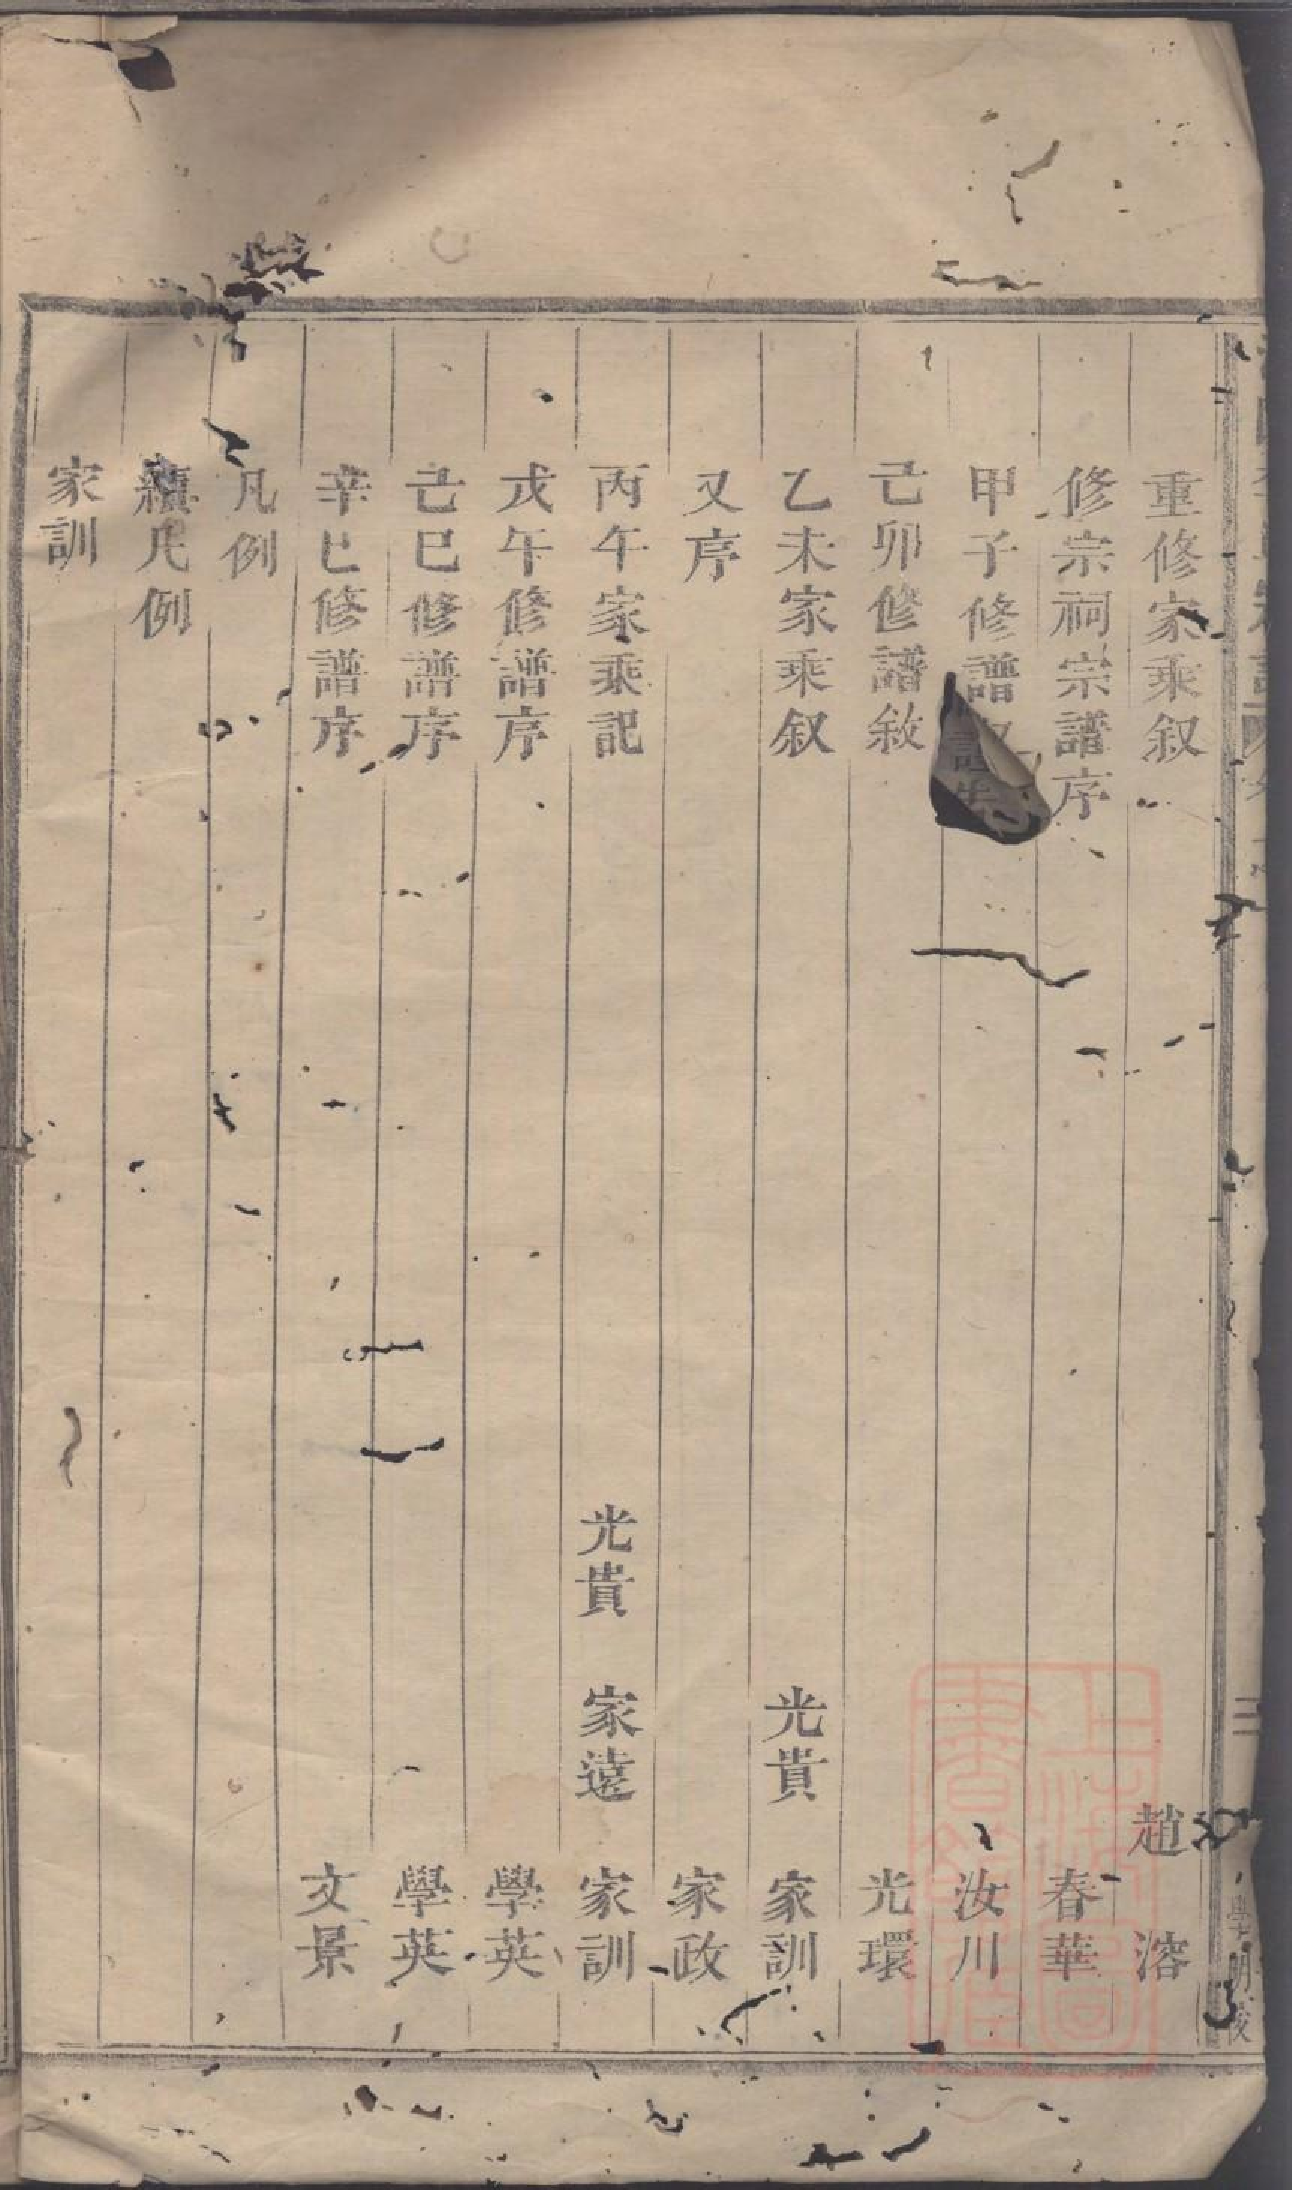 重修家乘叙 趙 溶
修宗祠宗譜序 春華
甲子修譜 汝川
己卯修譜敘 光環
乙未家乘叙 光貴 家訓
又序 家政
丙午家乘記 光貴 家遠 家訓
戊午修譜序 學英
己巳修譜序 學英
辛巳修譜序 文景
凡例
續凡例
家訓